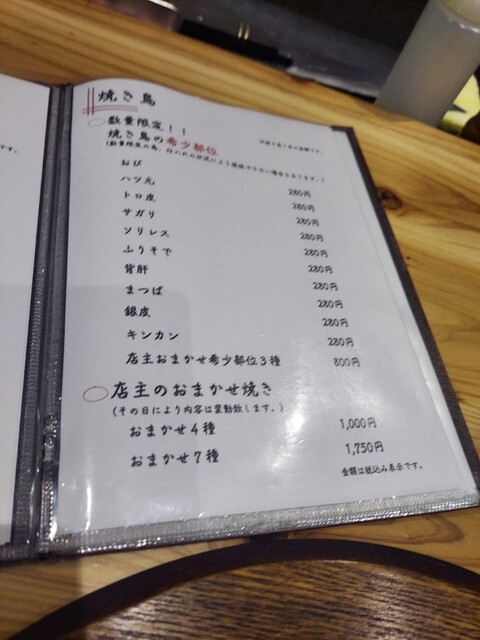 焼き鳥
数量限定！！
焼き鳥の希少部位
(数量限定の為、仕入れの状況により提供できない場合もあります。)
おび 280円
ハツ元 280円
トロ皮 280円
サガリ 280円
ソリレス 280円
ふりそで 280円
背肝 280円
まつば 280円
銀皮 280円
キンカン 280円
店主おまかせ希少部位3種 800円
店主のおまかせ焼き
(その日により内容は変動致します。)
おまかせ4種 1,000円
おまかせ7種 1,750円
金額は税込み表示です。
です。